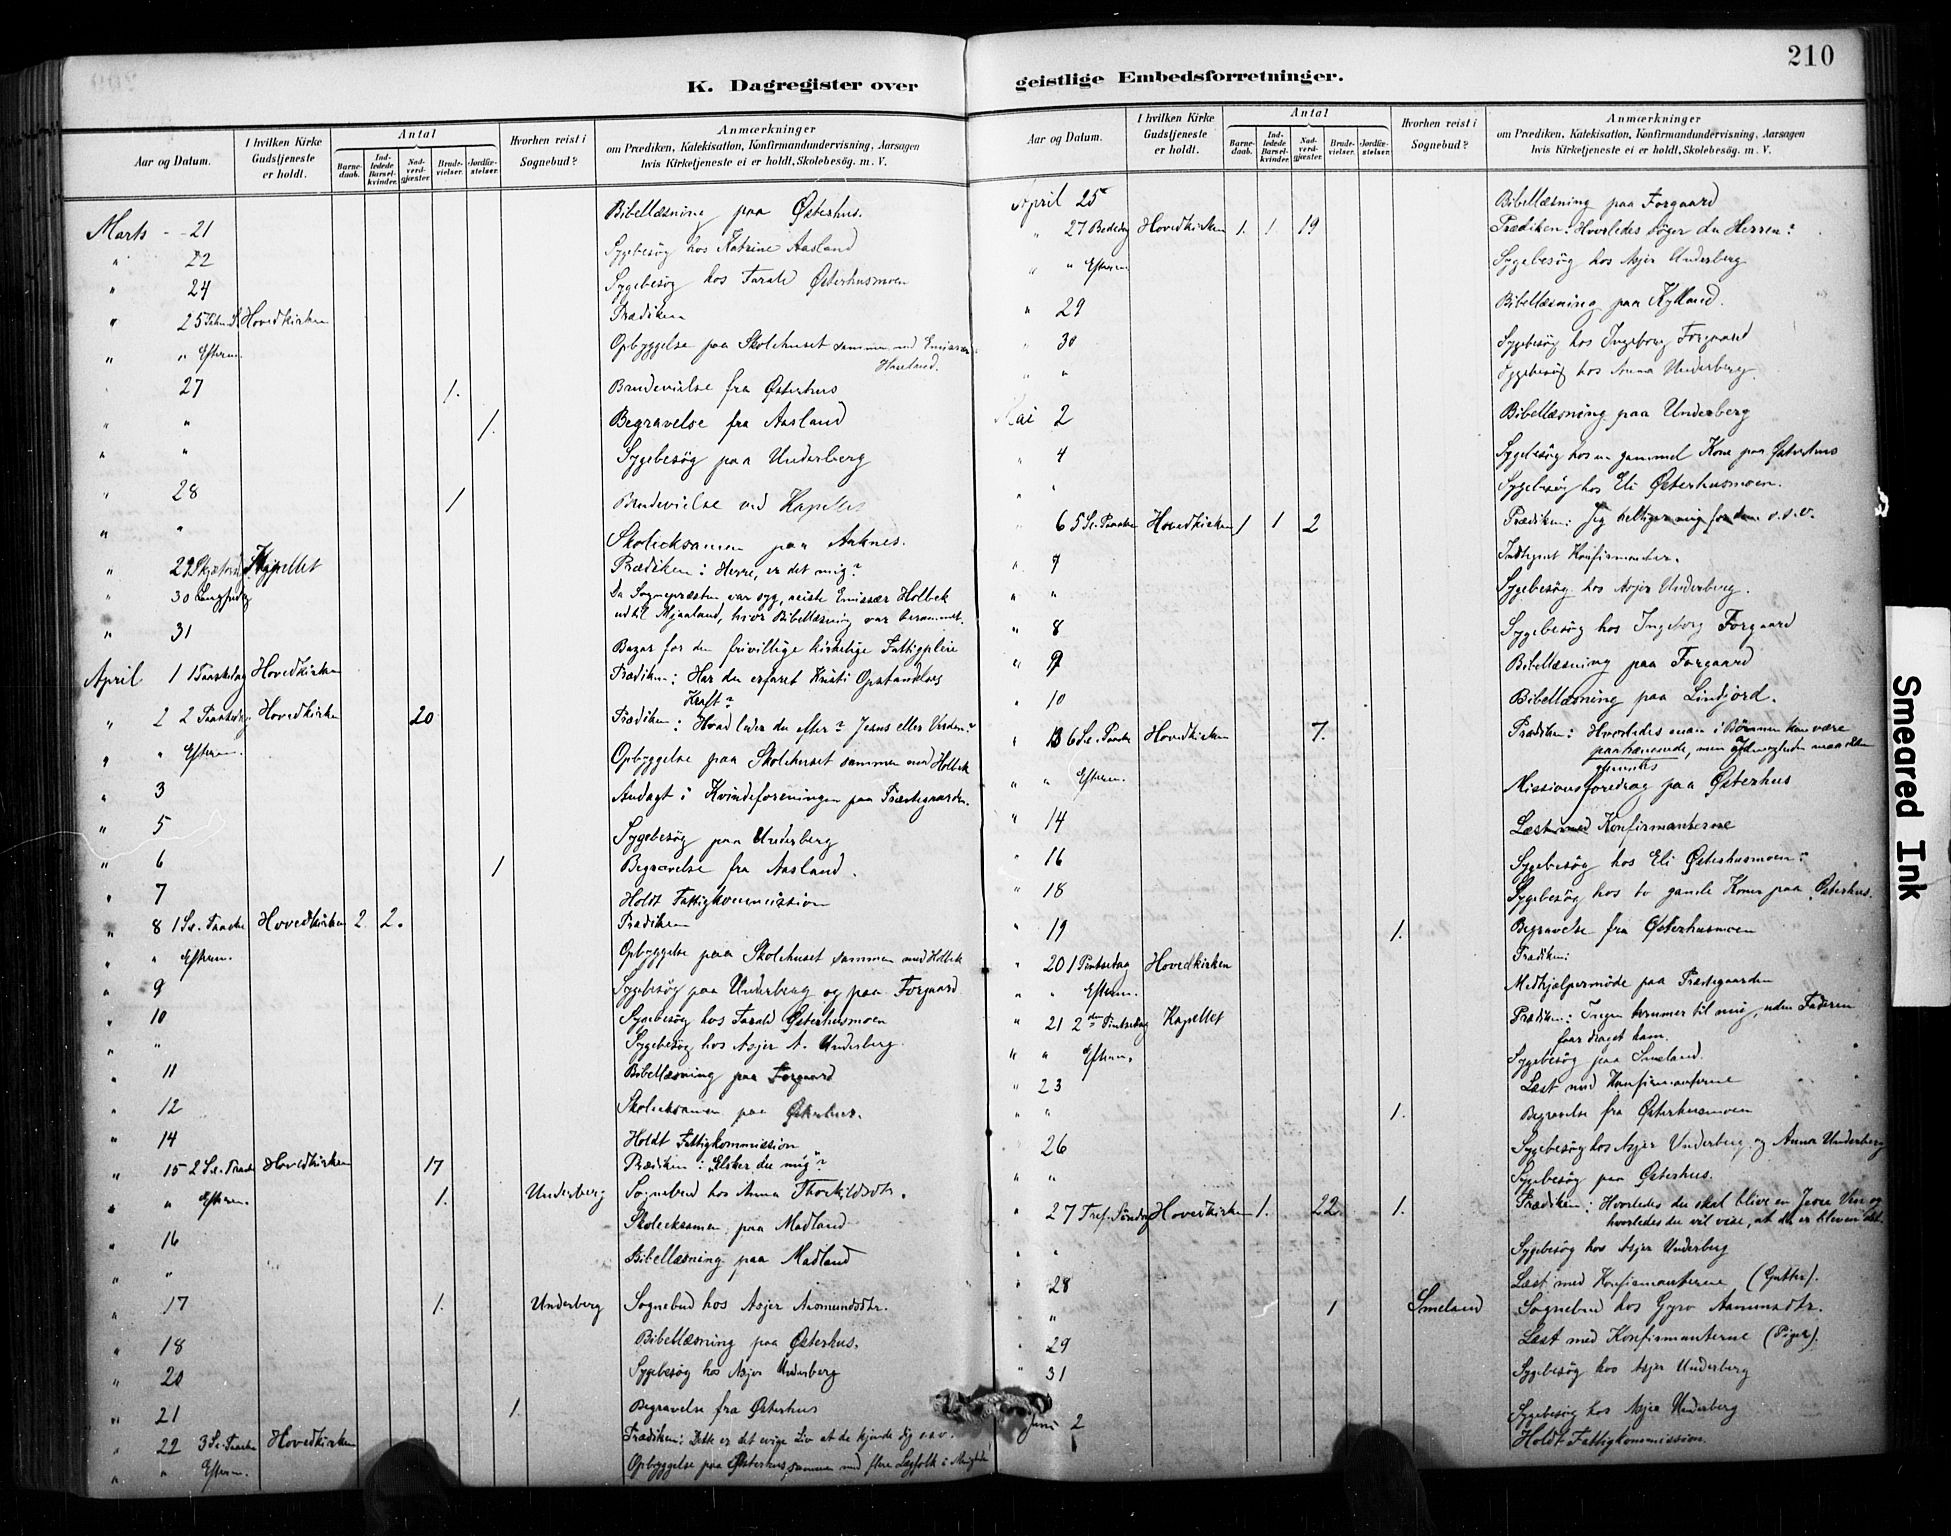 210
K. Dagregister over geistlige Embedsforretninger.
Aar og Datum.
I hvilken Kirke Gudstjeneste er holdt.
Antal
Barnedaab.
Indledede Barselkvinder.
Nadverdgjæster.
Brudevielser.
Jordfæstelser.
Hvorhen reist i Sognebud?
Anmærkninger
om Prædiken, Katekisation, Konfirmandundervisning, Aarsagen hvis Kirketjeneste ei er holdt, Skolebesøg. m. V.
Marts 21 Bibellæsning paa Østerhus.
" 22 Sygebesøg hos Katrine Aasland
" 24 Sygebesøg hos Tarald Østerhusmoen
" 25 Hovedkirken Prædiken
" " Efterm. Opbyggelse paa Skolehuset sammen med Emissær
Haveland.
" 27 1. Brudevielse fra Østerhus
" " 1. Begravelse fra Aasland
" " Sygebesøg paa Underberg
" 28 1 Brudevielse ved Kapellet
" " Skoleeksamen paa Aaknes.
" 29 Skjærtorsdag Kapellet Prædiken: Herre, er det mig?
" 30 Langfredag Da Sognepræsten var syg, reiste Emissær Holbek
ud til Mjaaland, hvor Bibellæsning var berammet.
" 31 Bazar for den frivillige kirkelige Fattigpleie
April 1 1 Paaskedag Hovedkirken Prædiken: Har du erfaret Kristi Opstandelses
Kraft?
" 2 2 Paaskedag Hovedkirken 20 Prædiken: Hvad leder du efter? Jesus eller Verden?
" " Efterm. Opbyggelse paa Skolehuset sammen med Holbek
" 3 Andagt i Kvindeforeningen paa Præstegaarden.
" 5 Sygebesøg paa Underberg
" 6 1 Begravelse fra Aasland.
" 7 Holdt Fattigkommission
" 8 1 Sø. Paaske Hovedkirken 2. 2. Prædiken
" " Efterm. Opbyggelse paa Skolehuset sammen med Holbek
" 9 Sygebesøg paa Underberg og paa Forgaard
" 10 Sygebesøg hos Tarald Østerhusmoen
" " Sygebesøg hos Asjer A. Underberg.
" 11 Bibellæsning paa Forgaard
" 12 Skoleeksamen paa Østerhus.
" 14 Holdt Fattigkommission
" 15 2 Sø. Paaske Hovedkirken 17 Prædiken: "Elsker du mig"?
" " Efterm. 1. Underberg Sognebud hos Anna Thorkildsdtr.
" 16 Skoleeksamen paa Madland
" " Bibellæsning paa Madland
" 17 1. Underberg Sognebud hos Asjer Aasmundsdtr.
" 18 Bibellæsning paa Østerhus.
" 20 Sygebesøg hos Asjer Underberg
" 21 1. Begravelse fra Østerhus
" 22 3 Sø. Paaske Hovedkirken Prædiken: Dette er det evige Liv at de kjende dig o.s.v.
" " Efterm. Opbyggelse paa Østerhus sammen med flere Lægfolk i Menigheden
Aar og Datum.
I hvilken Kirke Gudstjeneste er holdt.
Antal
Barnedaab.
Indledede Barselkvinder.
Nadverdgjæster.
Brudevielser.
Jordfæstelser.
Hvorhen reist i Sognebud?
Anmærkninger
om Prædiken, Katekisation, Konfirmandundervisning, Aarsagen hvis Kirketjeneste ei er holdt, Skolebesøg. m. V.
April 25 Bibellæsning paa Forgaard
" 27 Bededag Hovedkirken 1. 1. 19 Prædiken: Hvorledes søger du Herren?
" " Efterm. Sygebesøg hos Asjer Underberg
" 29 Bibellæsning paa Kylland.
" 30 Sygebesøg hos Ingeborg Forgaard
" " Sygebesøg hos Anna Underberg.
Mai 2 Bibellæsning paa Underberg
" 4 Sygebesøg hos en gammel Kone paa Østerhus
" " Sygebesøg hos Eli Østerhusmoen.
" 6 5 Sø. Paaske Hovedkirken 1 1 2 Prædiken: Jeg helliger mig for dem o.s.v.
" 7 Indtegnet Konfirmanter.
" " Sygebesøg hos Asjer Underberg.
" 8 Sygebesøg hos Ingeborg Forgaard
" 9 Bibellæsning paa Forgaard
" 10 Bibellæsning paa Lindjord.
" 13 6 Sø. Paaske Hovedkirken 7. Prædiken: Hvorledes man i Bønnen kan være
paatrængende, men Ydmygheden maa ikke
glemmes
" " Efterm. Missionsforedrag paa Østerhus
" 14 Læst med Konfirmanterne
" 16 Sygebesøg hos Eli Østerhusmoen.
" 18 Sygebesøg hos to gamle Koner paa Østerhus.
" 19 1. Begravelse fra Østerhusmoen
" 20 1 Pintsedag Hovedkirken Prædiken:
" " Efterm. Medhjælpermøde paa Præstegaarden
" 21 2den Pintsedag Kapellet Prædiken: Ingen kommer til mig, uden Faderen
faar draget ham.
" " Efterm. Sygebesøg paa Smeland.
" 23 Læst med Konfirmanterne
" " 1. Begravelse fra Østerhusmoen
" 26 Sygebesøg hos Asjer Underberg og Anna Underberg
" " Sygebesøg paa Østerhus.
" 27 Tref. Søndag Hovedkirken 1. 22 1. Prædiken: Hvorledes du skal blive en Jesu Ven og
hvorledes du vil vise, at du er bleven det.
" " Sygebesøg hos Asjer Underberg
" 28 Læst med Konfirmanterne (Gutter).
" " 1 Smeland Sognebud hos Gyro Aanundsdtr.
" 29 Læst med Konfirmanterne (Piger).
" 31 Sygebesøg hos Asjer Underberg
Sygebesøg hos Asjer Underberg
Juni 2 Holdt Fattigkommission.
Smeared Ink